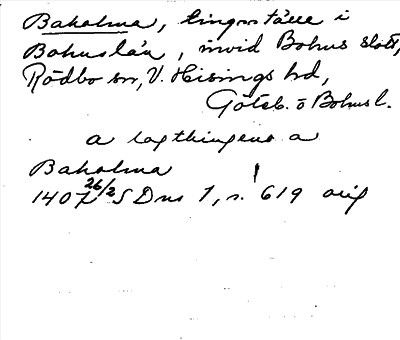 Baholma, tingsställe i
Bohuslän, invid Bohus slott,
Rödbo sn, V. Hisings hd,
Göteb. o Bohusl.
a lagthingeno a
Baholma
1407 26/2 SDns 1, s. 619 orig